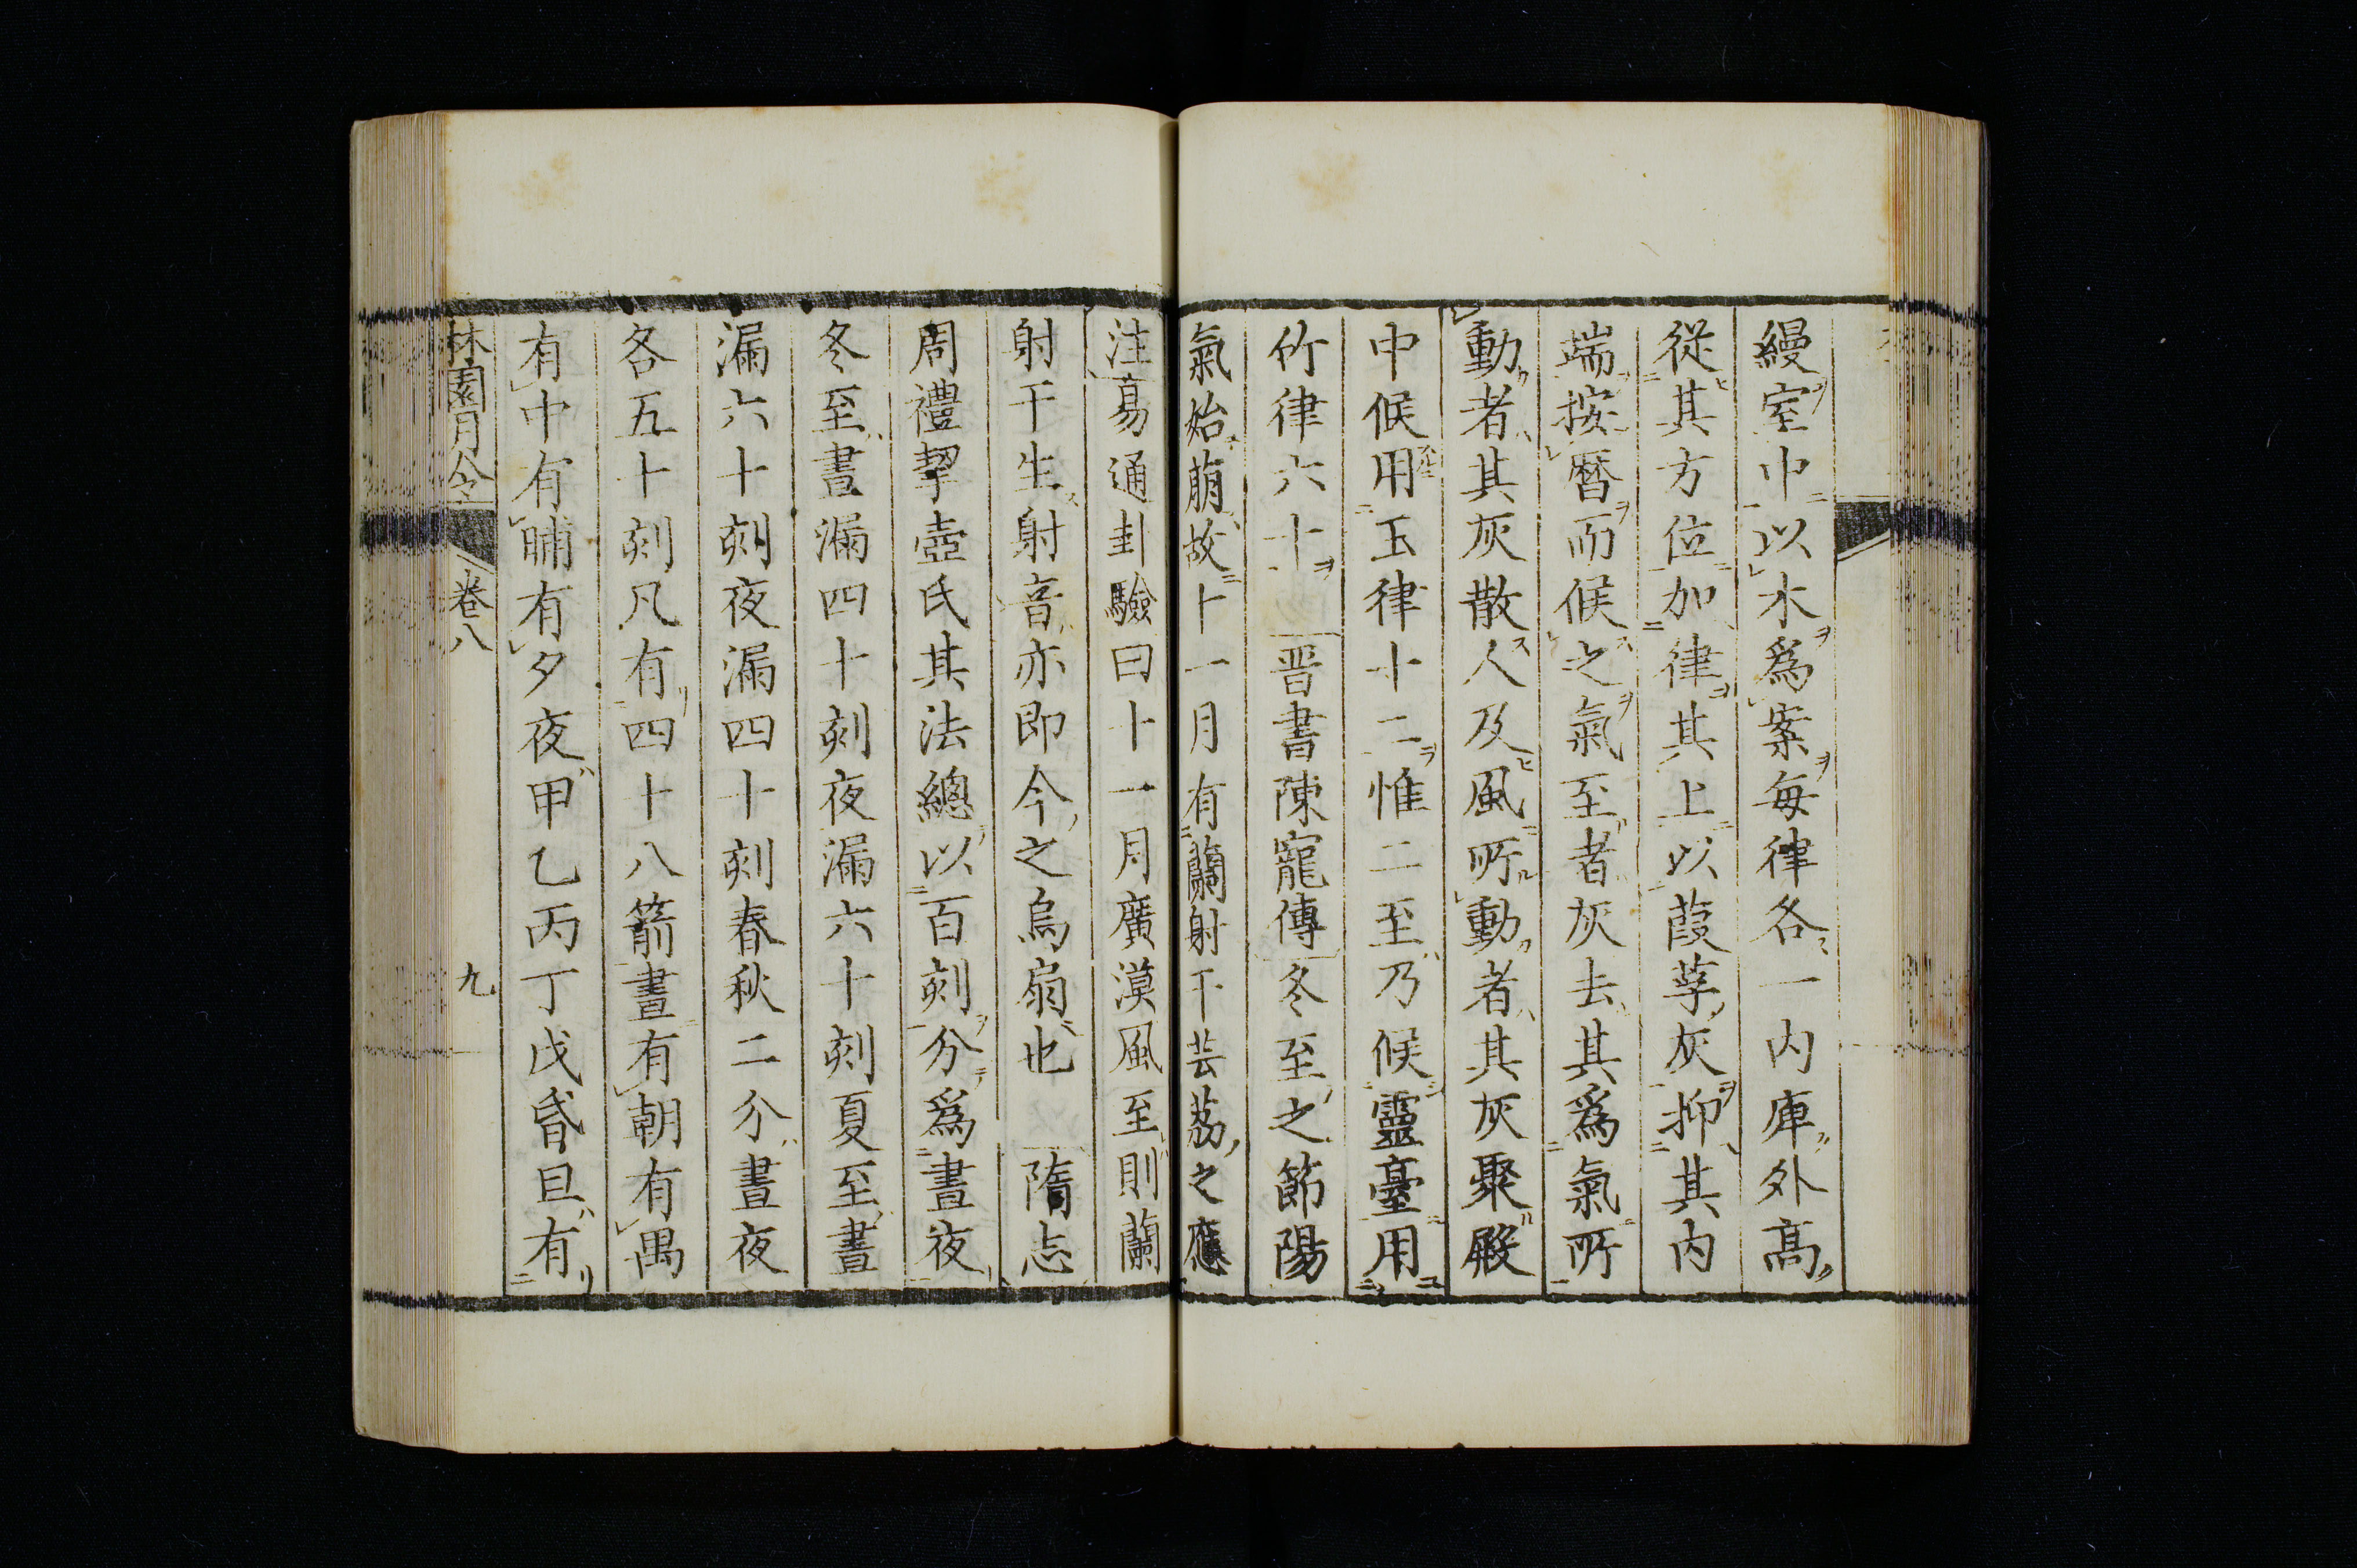 縵室中以木爲案每律各一内庳外高
從其方位加律其上以葭莩灰抑其内
端按暦而候之氣至者灰去其爲氣所
動者其灰散人及風所動者其灰聚殿
中候用玉律十二惟二至乃候靈臺用
竹律六十　晋書陳寵傳冬至之節陽
氣始萠故十一月有蘭射干芸荔之應
注易通卦驗曰十一月廣漠風至則蘭
射干生射音亦即今之烏扇也　隋志
周禮挈壺氏其法總以百刻分爲晝夜
冬至晝漏四十刻夜漏六十刻夏至晝
漏六十刻夜漏四十刻春秋二分晝夜
各五十刻凡有四十八箭晝有朝有禺
有中有晡有夕夜甲乙丙丁戊昏旦有
林園月令　卷八　九